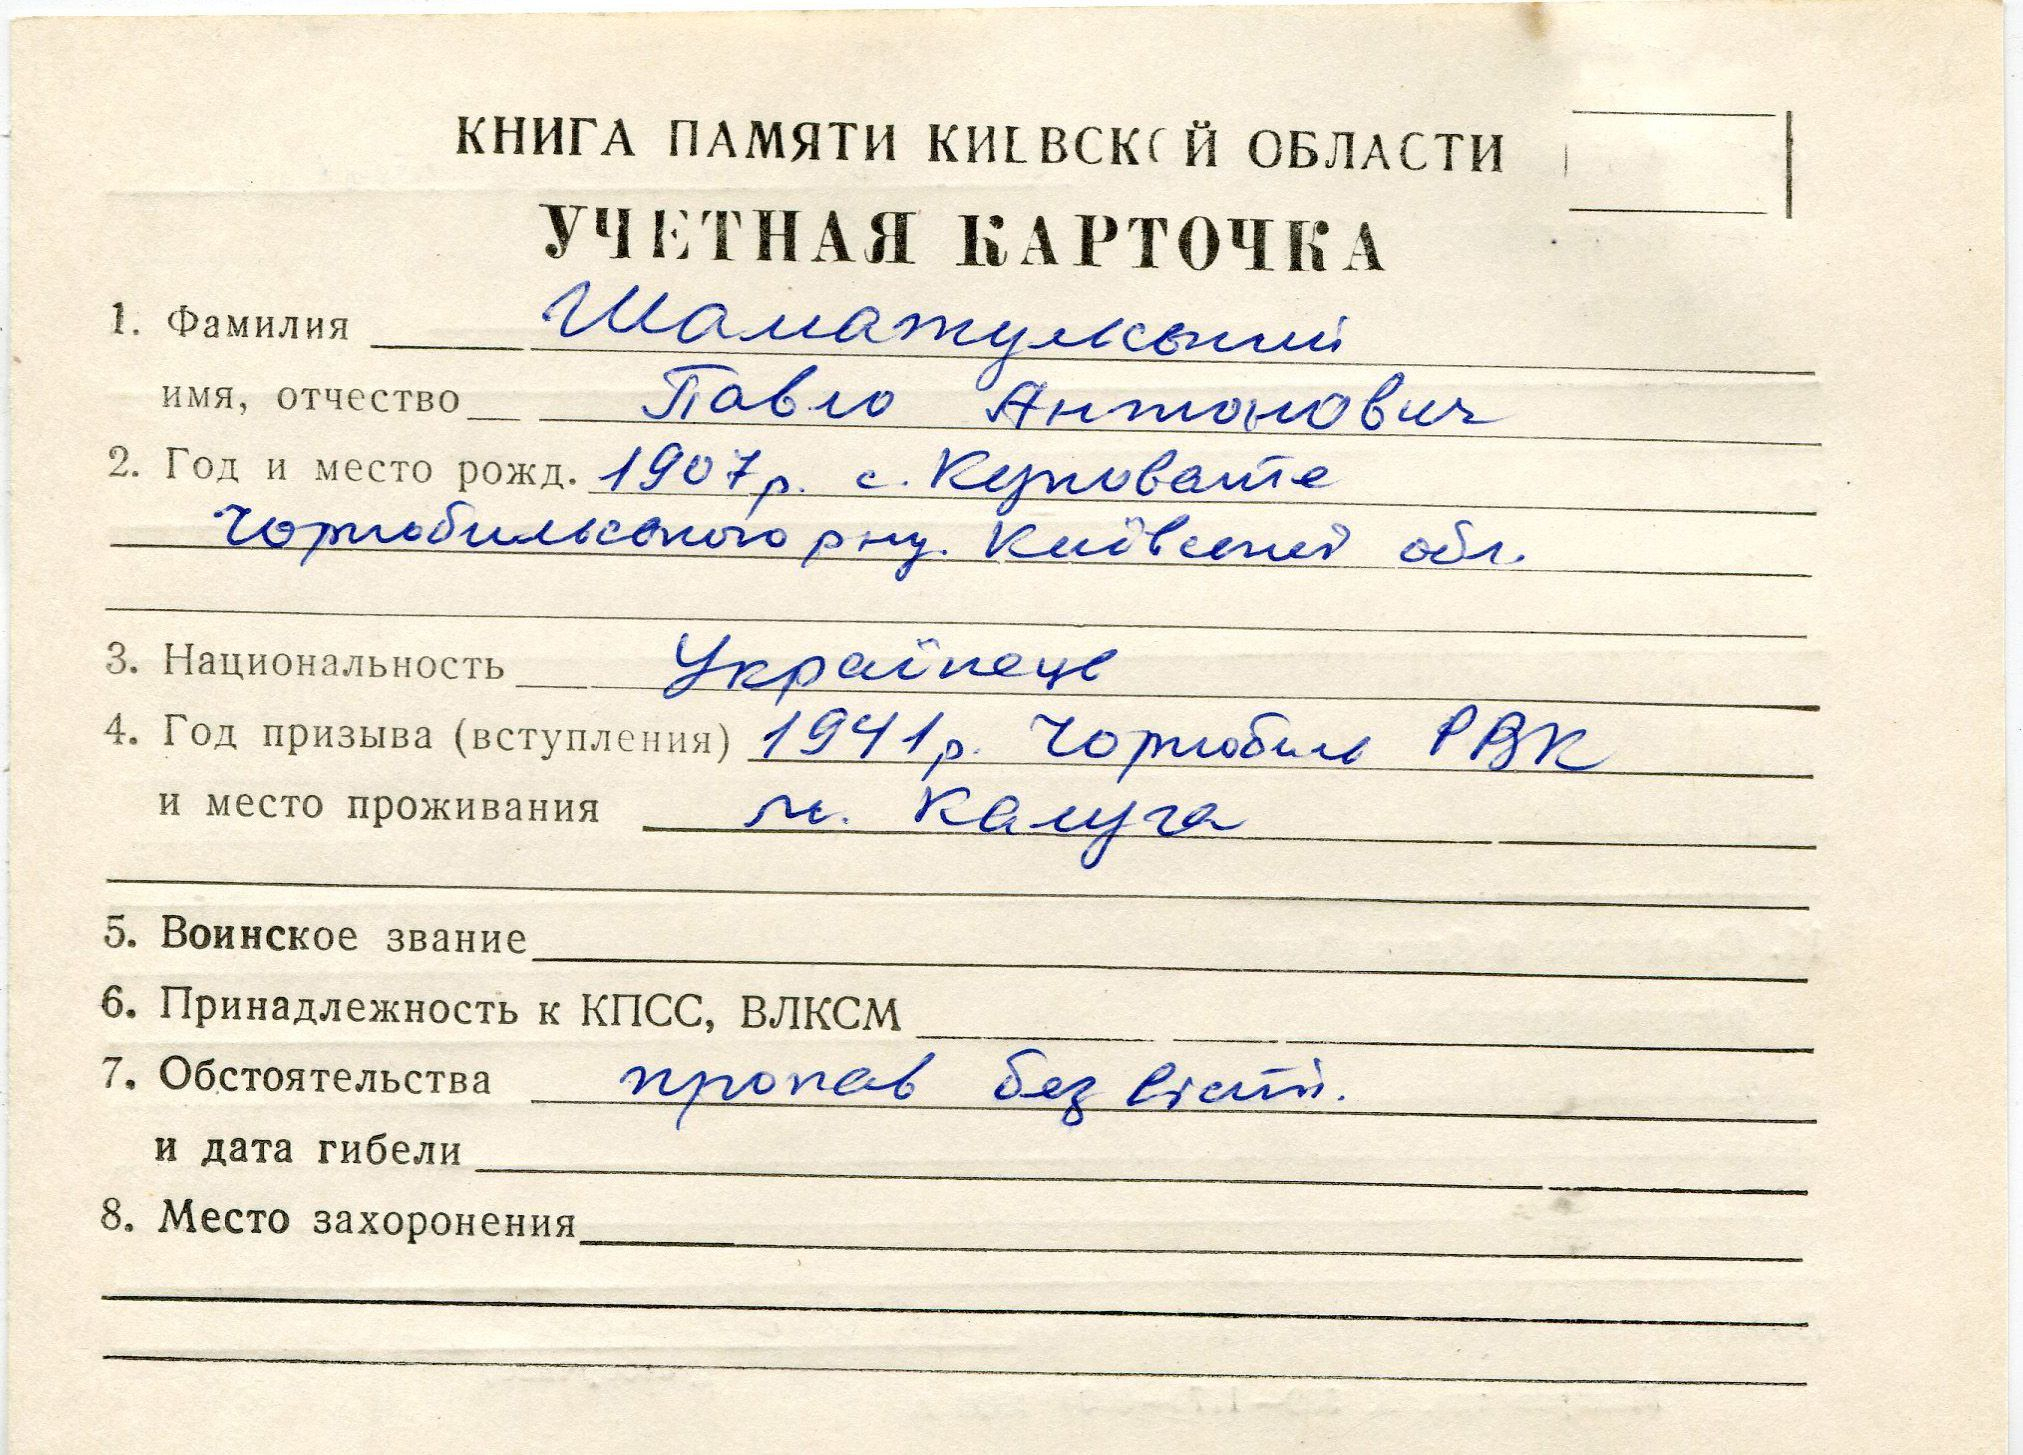 КНИГА ПАМЯТИ КИЕВСКОЙ ОБЛАСТИ
УЧЕТНАЯ КАРТОЧКА
1. Фамилия Шаматульський
имя, отчество Павло Антонович
2. Год и место рожд. 1907 р. с. Куповате
Чорнобильського р-ну. Київської обл.
3. Национальность Українець
4. Год призыва (вступления) 1941 р. Чорнобиль РВК
и место проживания м. Калуга
5. Воинское звание
6. Принадлежность к КПСС, ВЛКСМ
7. Обстоятельства пропав без вісті.
и дата гибели
8. Место захоронения